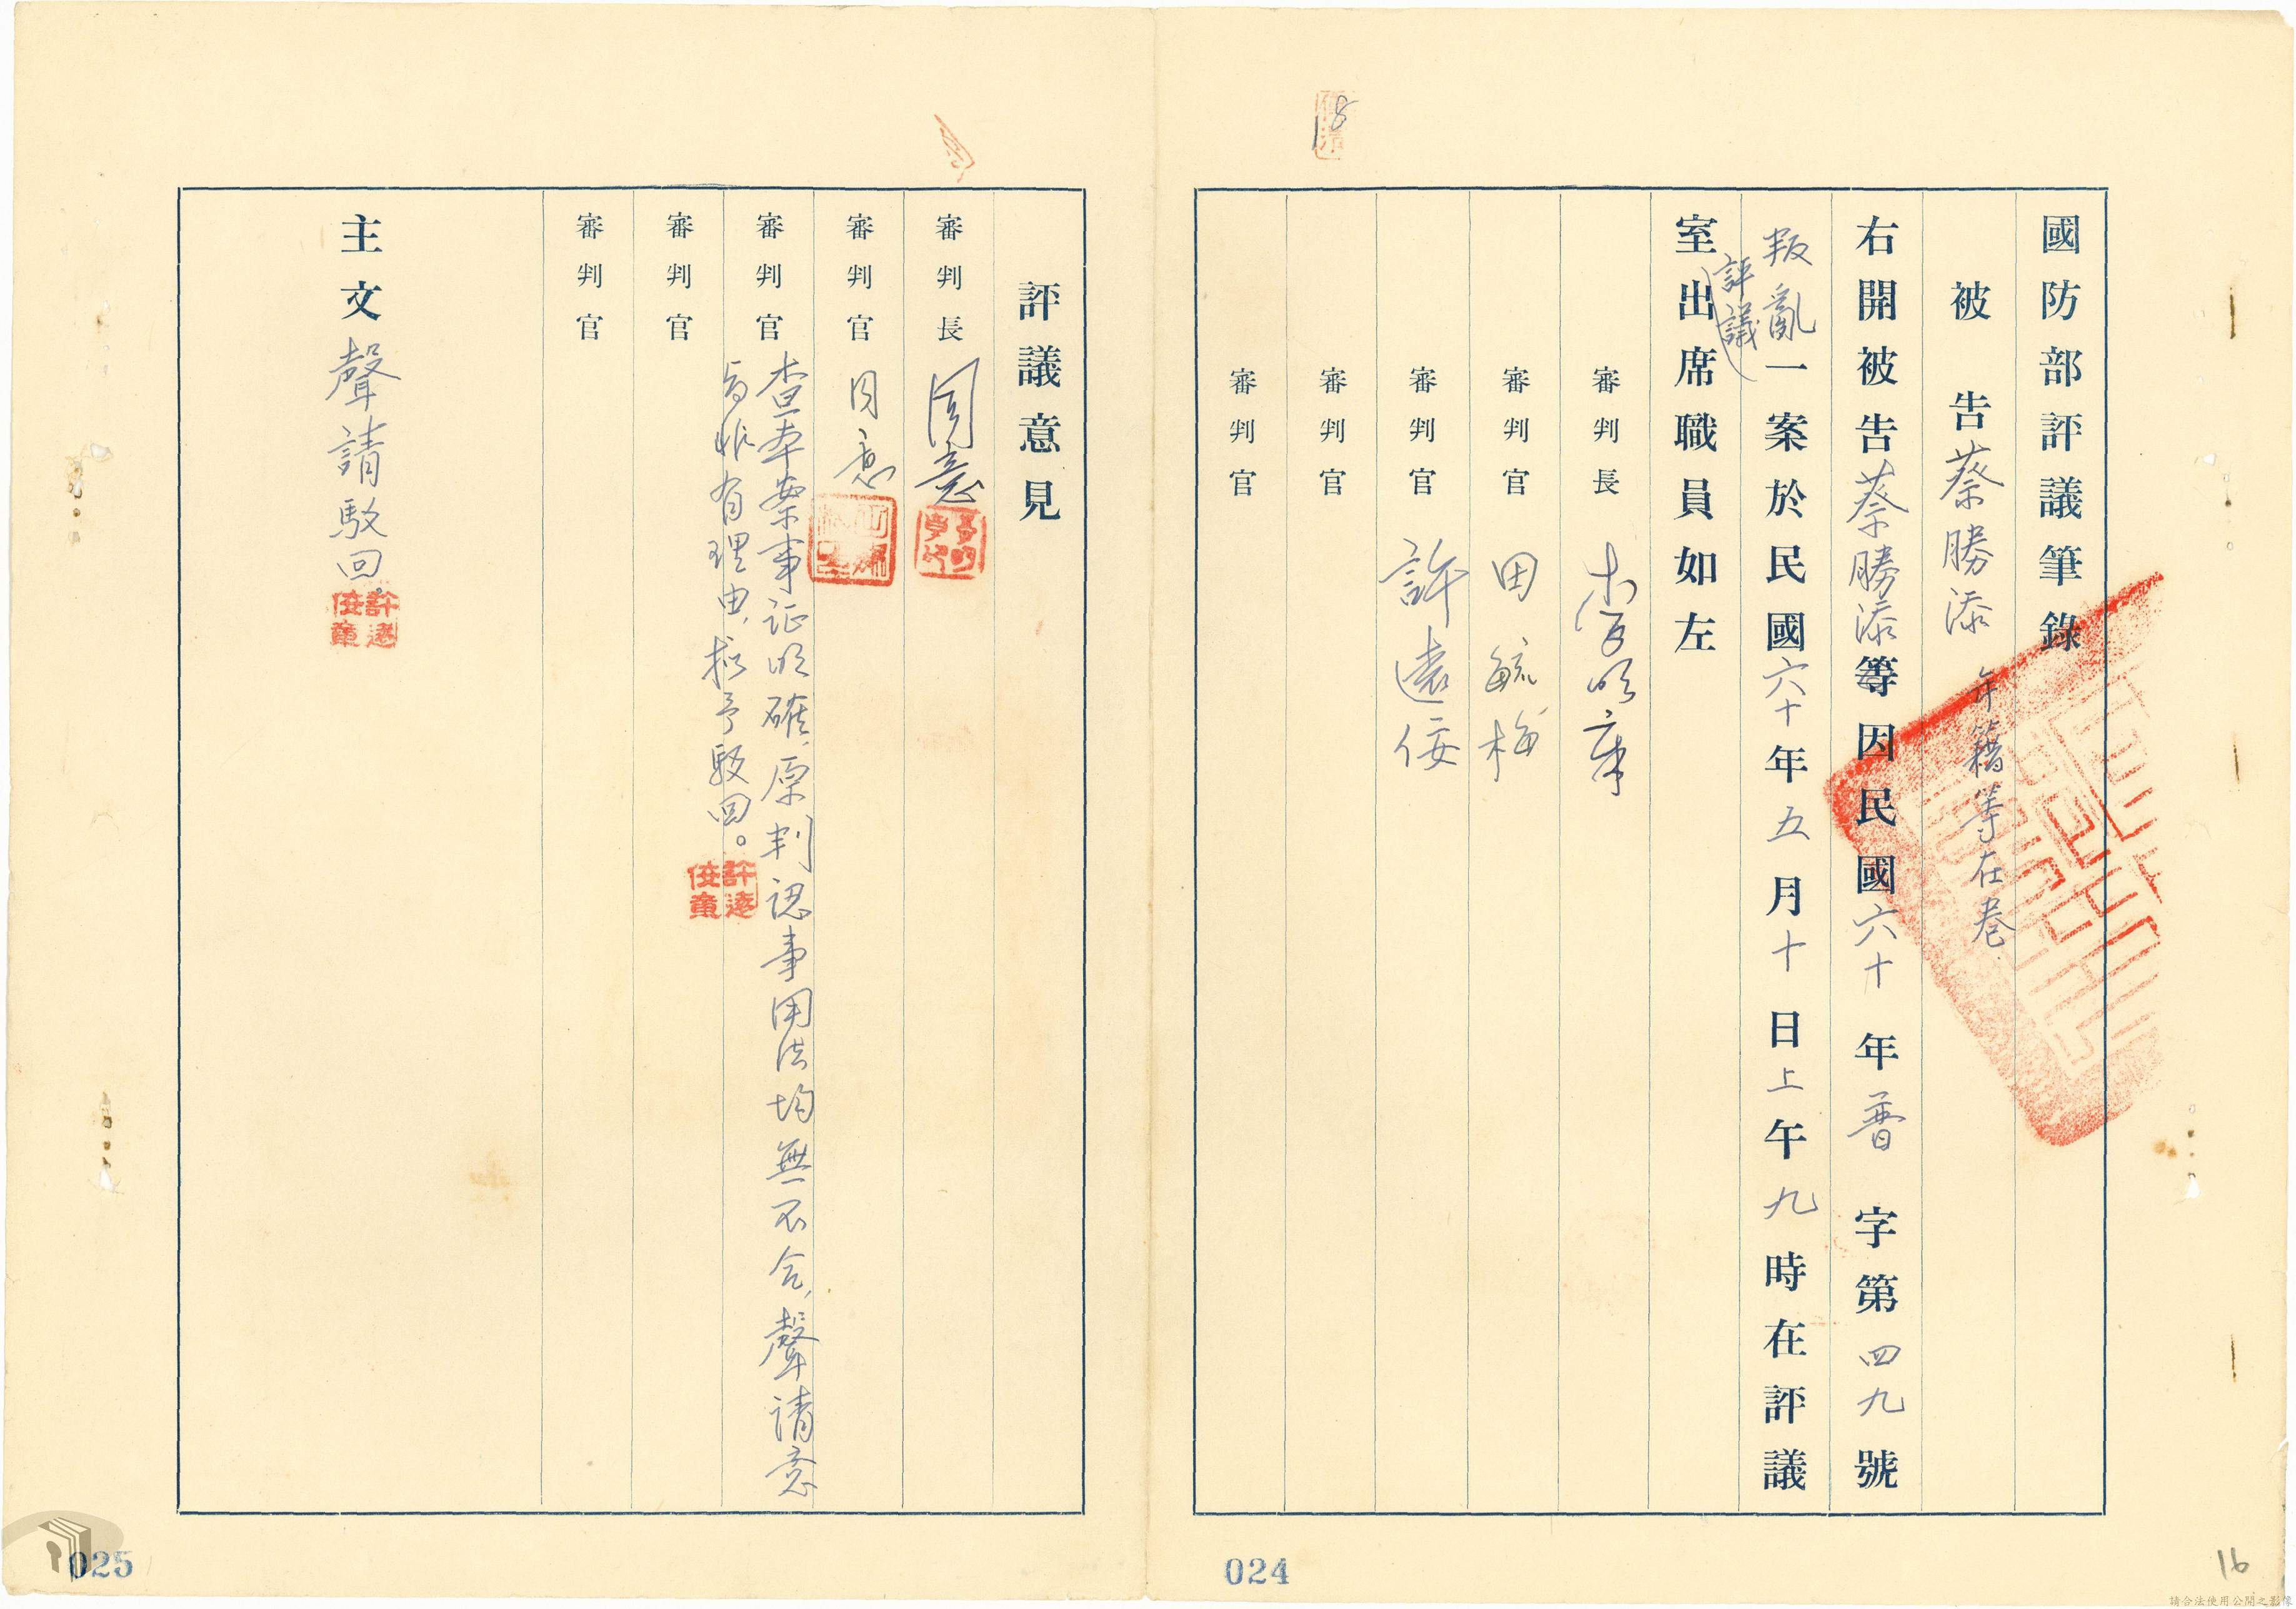 國防部評議筆錄
被告蔡勝添 年籍等在卷
右開被告蔡勝添等因民國六十年普字第四九號
叛亂一案於民國六十年五月十日上午九時在評議
評議
室出席職員如左
審判長
審判官 田毓梅
審判官 許遠佞
審判官
審判官
18
評議意見
審判長 同意
審判官 同意
審判官 查本案事証明確,原判認事用法均無不合,聲請意
旨非有理由,擬予駁回。
審判官
審判官
主文 聲請駁回。
024
025
16
請合法使用公開之影像